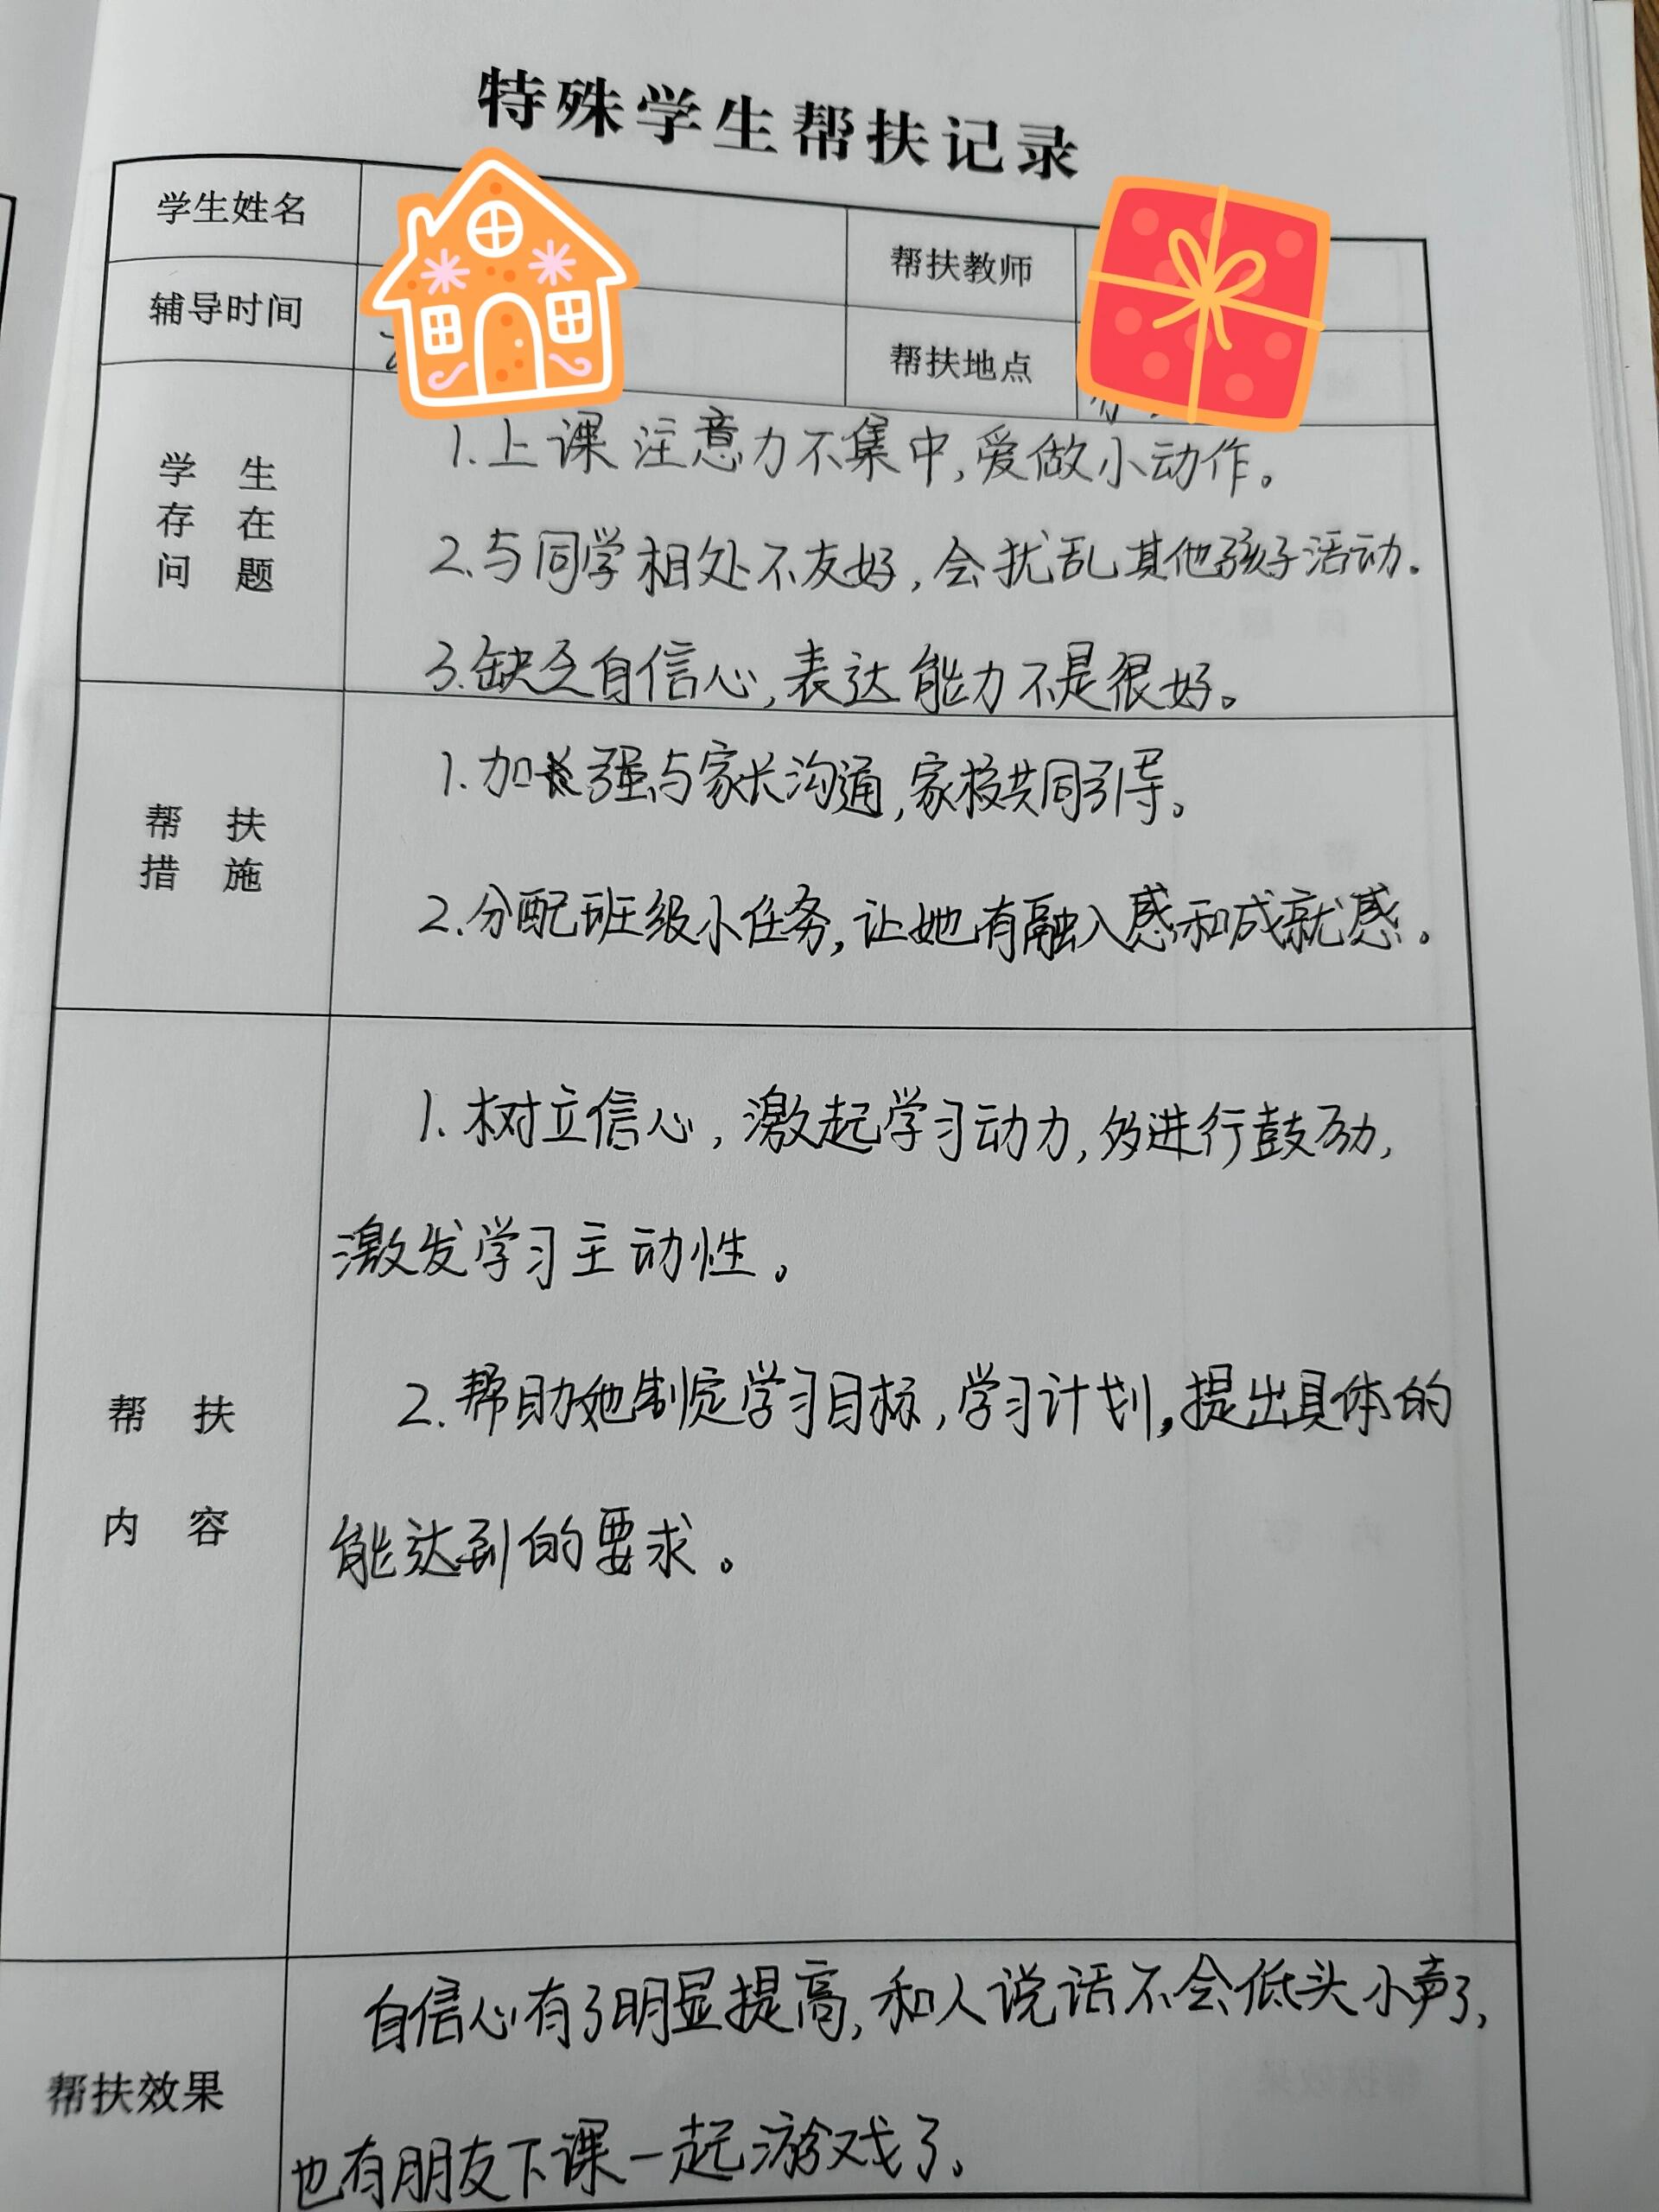 特殊学生帮扶记录
学生姓名
帮扶教师
辅导时间
帮扶地点
学生
存在
问题
1.上课注意力不集中,爱做小动作。
2.与同学相处不友好,会扰乱其他孩子活动.
3.缺乏自信心,表达能力不是很好。
帮扶
措施
1.加强与家长沟通,家校共同引导。
2.分配班级小任务,让她有融入感和成就感。
帮扶
内容
1.树立信心,激起学习动力,多进行鼓励,
激发学习主动性。
2.帮助她制定学习目标,学习计划,提出具体的
能达到的要求。
帮扶效果
自信心有了明显提高,和人说话不会低头小声了,
也有朋友下课一起游戏了。